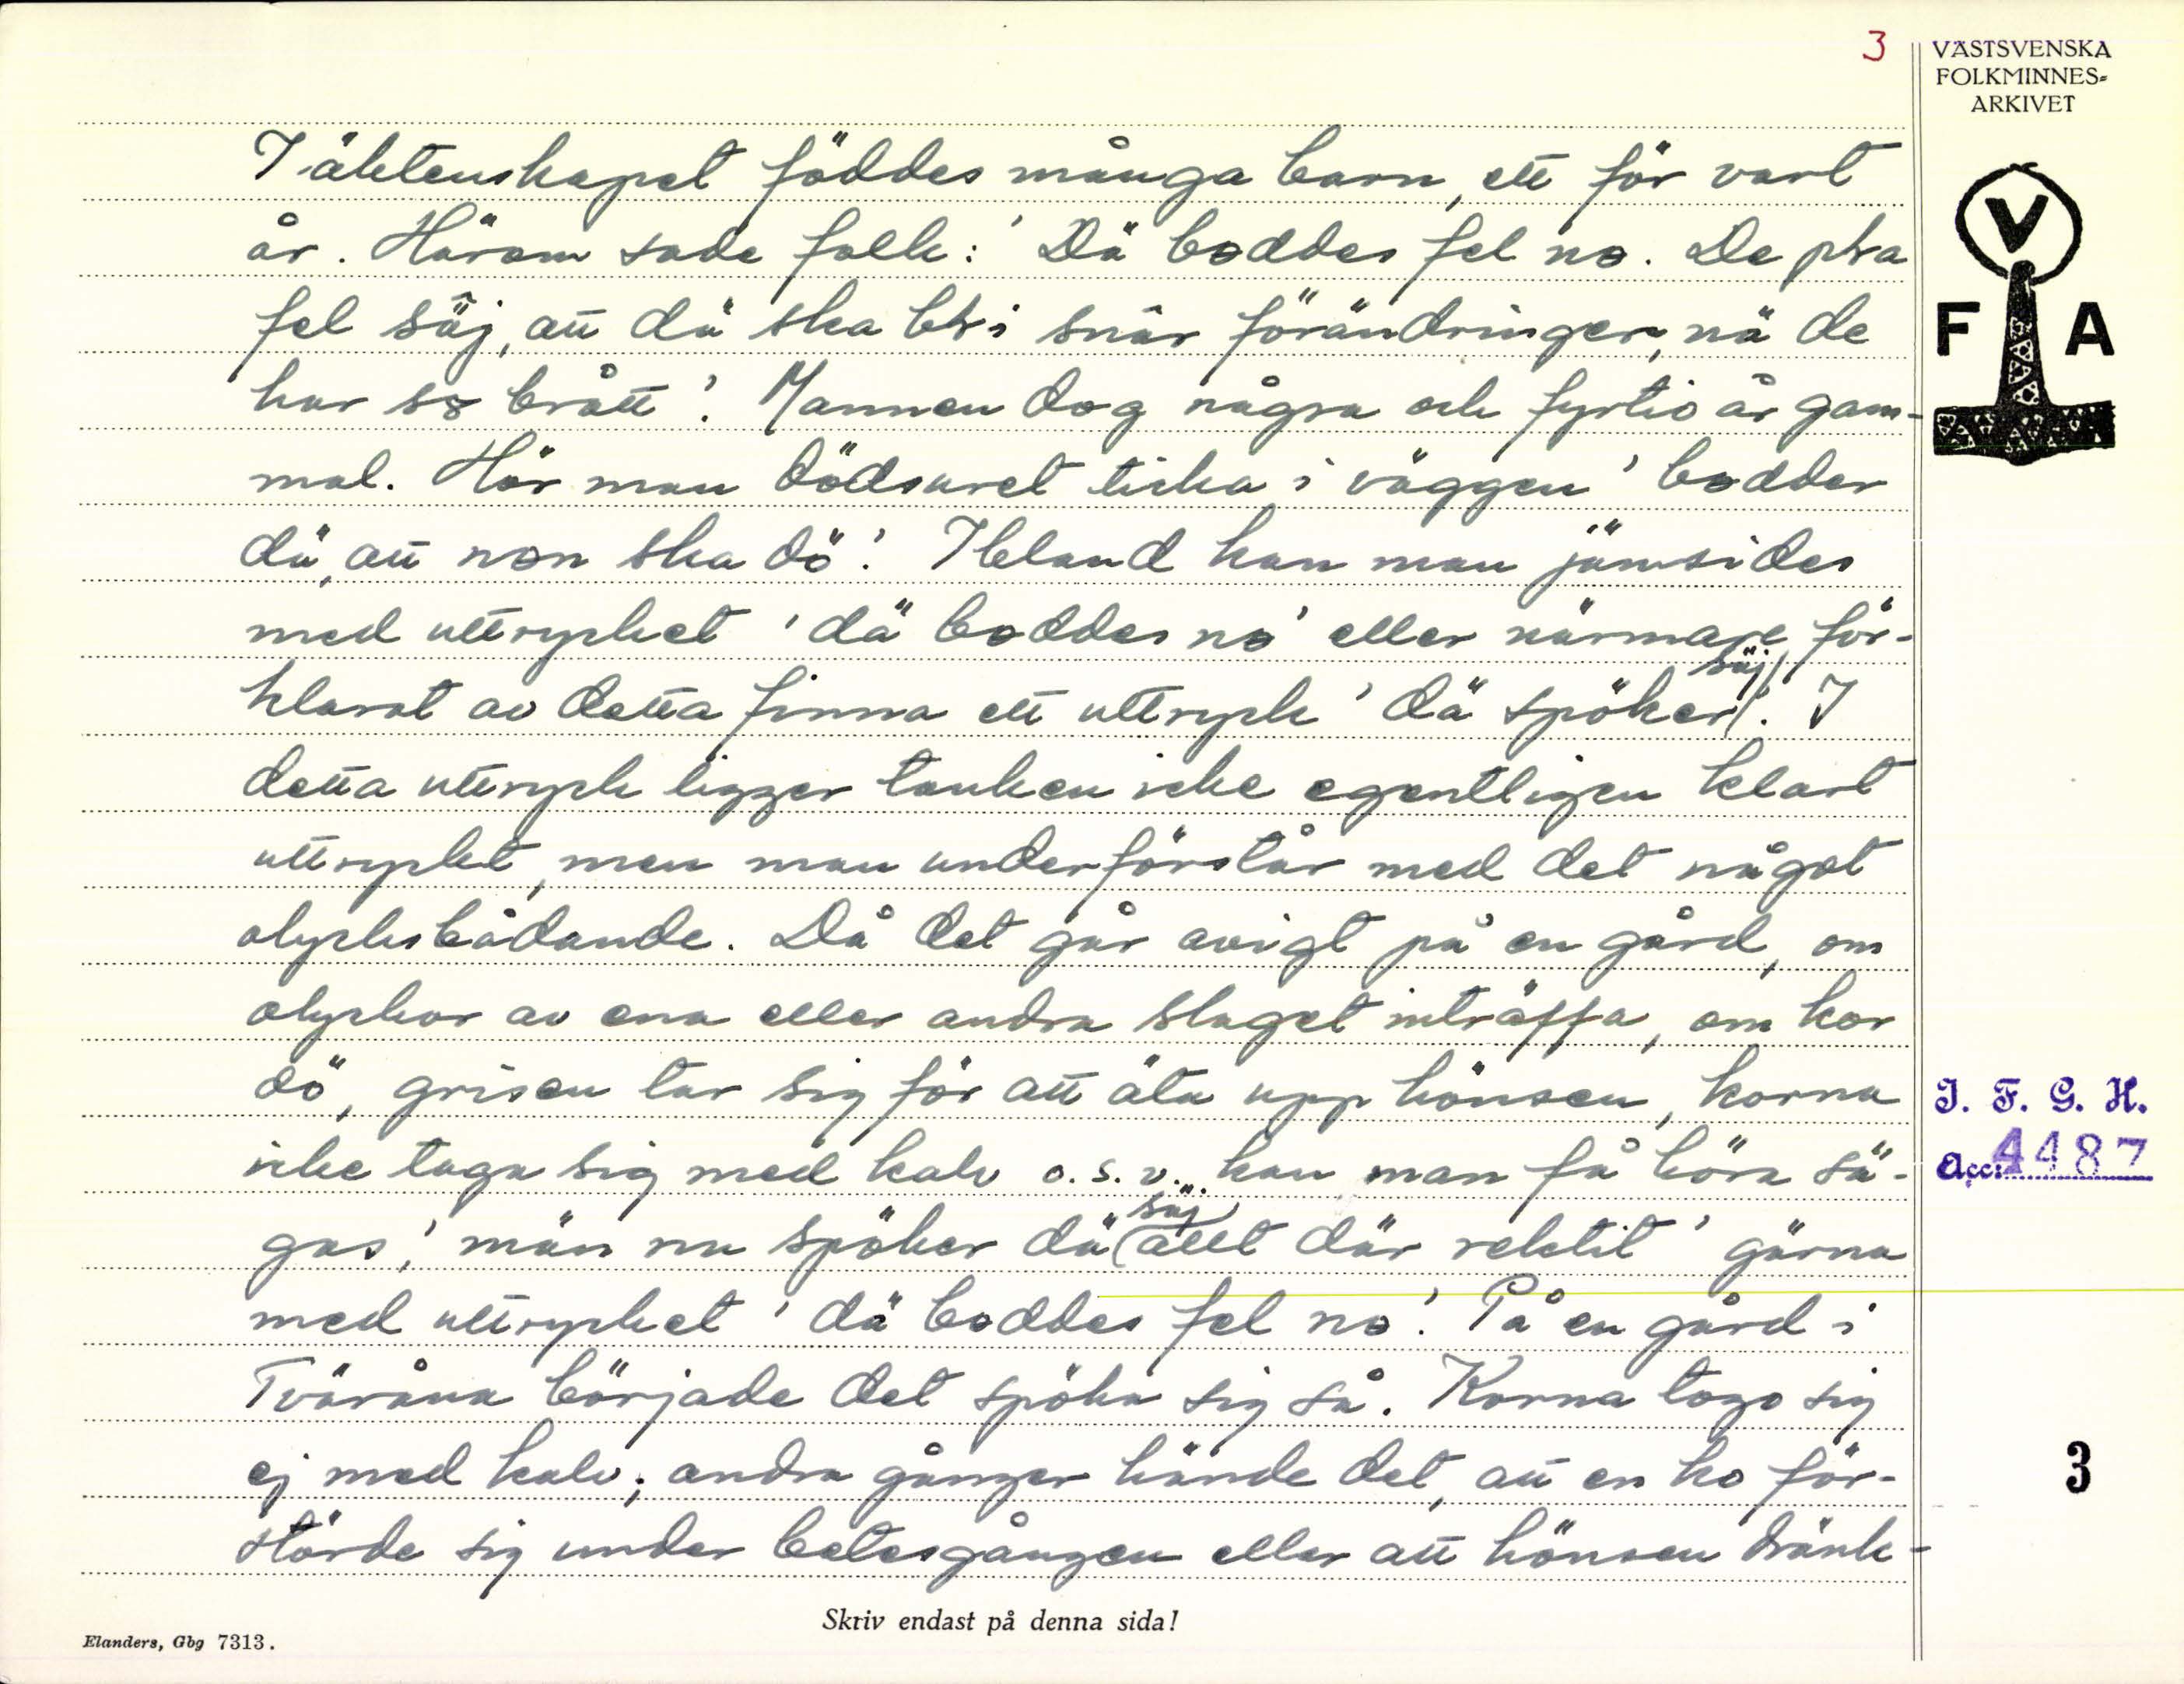 3
VÄSTSVENSKA
FOLKMINNES-
ARKIVET
I äktenskapet föddes många barn, ett för vart
år. Härom sade folk: 'Dä boddes fel no. De pla
fel säj, att dä ska bli snar förändringer, nä de
har so brått'. Mannen dog några och fyrtio år gam-
mal. Hör man dödsuret ticka i väggen 'bodder
dä, att non ska dö'. Ibland kan man jämsides
med uttrycket 'dä boddes no' eller närmare för-
klarat av detta finna ett uttryck 'dä spöker säj'. I
detta uttryck ligger tanken icke egentligen klart
uttryckt, men man underförstår med det något
olycksbådande. Då det går avigt på en gård, om
olyckor av ena eller andra slaget inträffa, om kor
dö, grisen tar sig för att äta upp hönsen, korna
icke taga sig med kalv o.s.v. kan man få höra sä-
gas, 'män nu spöker dä säj allt där rektit' gärna
med uttrycket 'dä boddes fel no'. På en gård i
Tväråna började det spöka sig så. Korna togo sig
ej med kalv; andra gånger hände det, att en ko för-
störde sig under betesgången eller att hönsen dränk-
V
F A
I. F. G. H.
Acc. 4487
3
Skriv endast på denna sida!
Elanders, Gbg 7313.